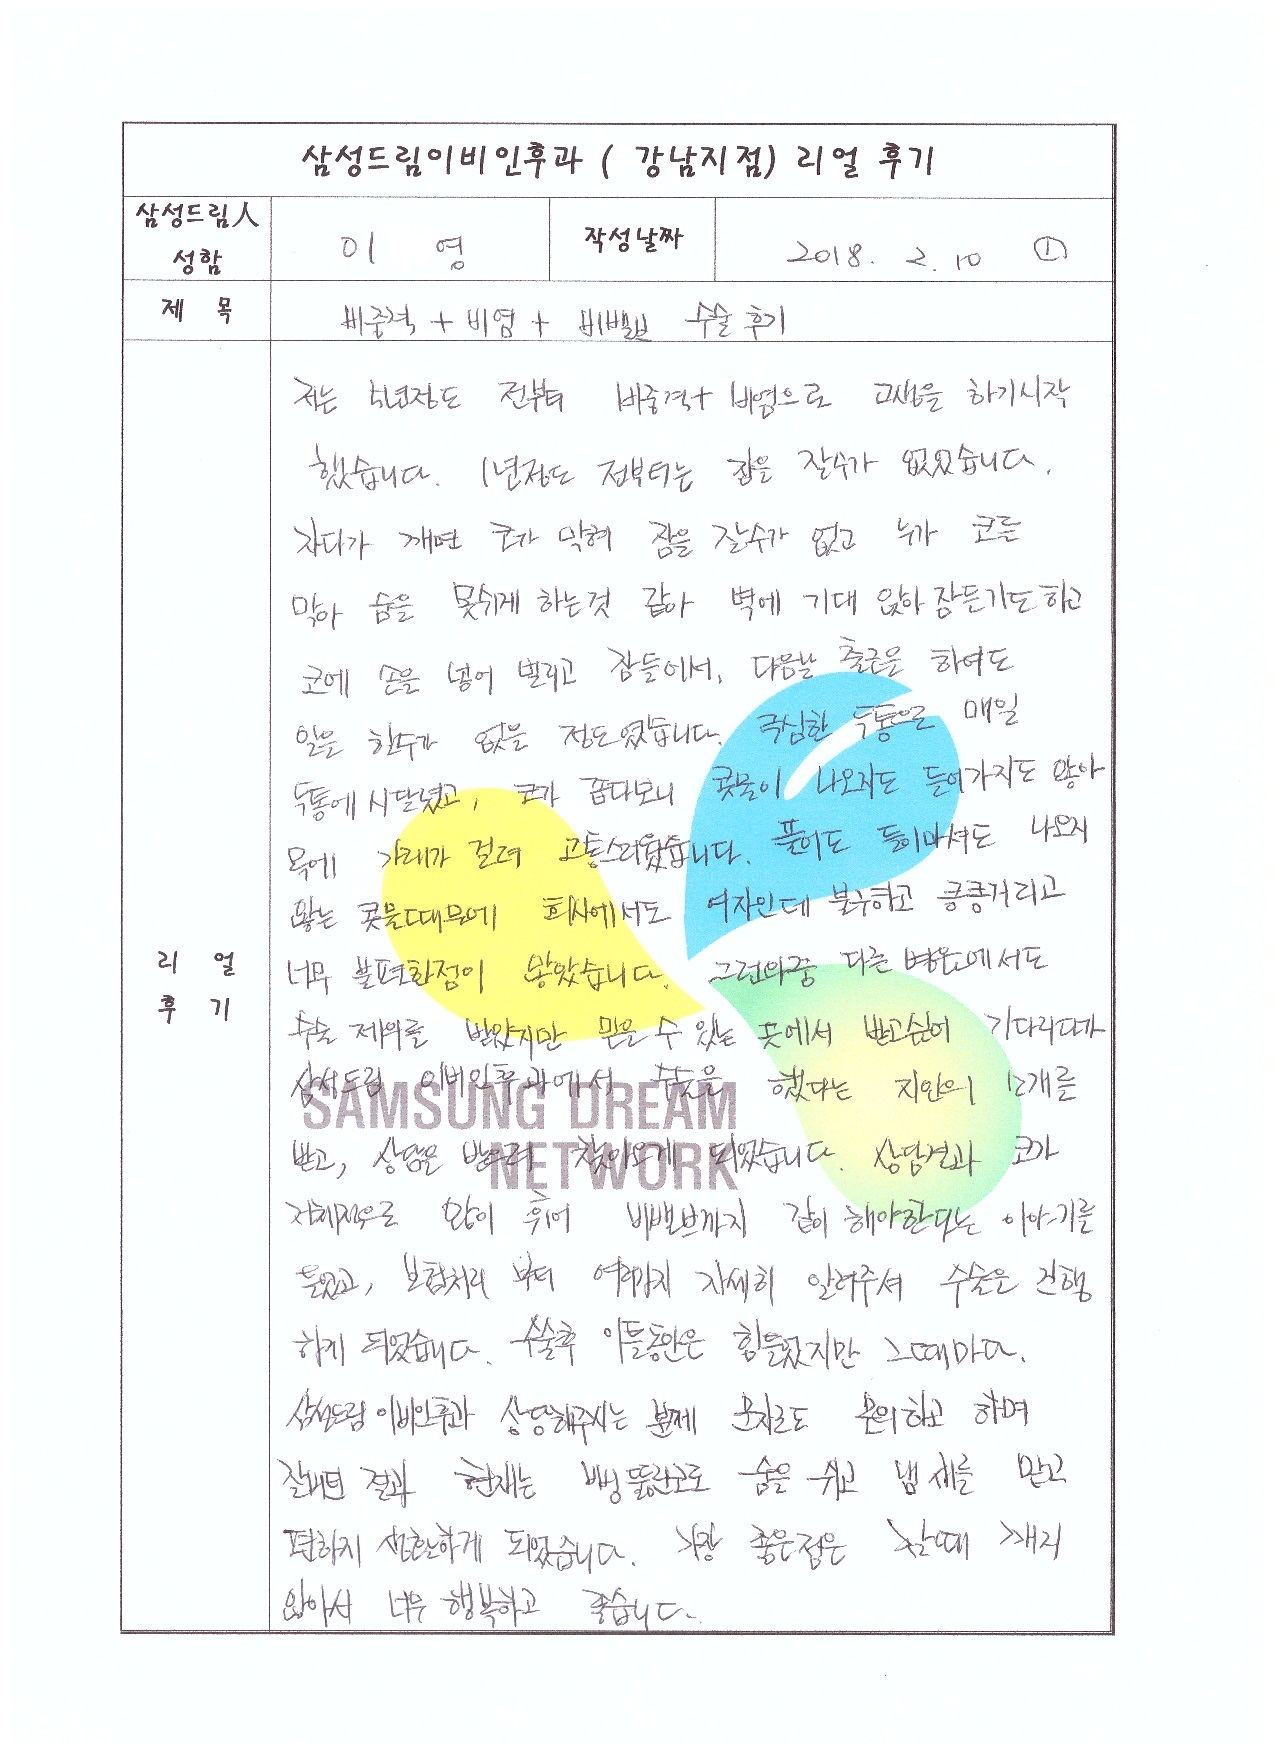 삼성드림이비인후과 ( 강남지점) 리얼 후기
삼성드림人 성함
이 영
작성날짜
2018. 2. 10 ①
제 목
비중격 + 비염 + 비밸브 수술 후기
리 얼 후 기
저는 5년정도 전부터 비중격+ 비염으로 고생을 하기시작
했습니다. 1년정도 전부터는 잠을 잘수가 없었습니다.
자다가 깨면 코가 막혀 잠을 잘수가 없고 누가 코를
막아 숨을 못쉬게 하는것 같아 벽에 기대 앉아 잠든기도하고
코에 손을 넣어 벌리고 잠들어서, 다음날 출근을 하여도
일을 할수가 없을 정도였습니다. 극심한 두통으로 매일
두통에 시달렸고, 코가 좁다보니 콧물이 나오지도 들어가지도 않아
목에 가래가 걸려 고통스러웠습니다. 풀어도 들이마셔도 나오지
않는 콧물때문에 회사에서도 여자인데 불구하고 킁킁거리고
너무 불편한점이 많았습니다. 그런와중 다른 병원에서도
수술 제의를 받았지만 믿을 수 있는 곳에서 받고싶어 기다리다가
삼성드림 이비인후과에서 수술을 했다는 지인의 소개를
받고, 상담을 받으러 찾아오게 되었습니다. 상담결과 코가
전체적으로 많이 휘어 비밸브까지 같이 해야한다는 이야기를
들었고, 보험처리 부터 여러가지 자세히 알려주셔 수술을 진행
하게 되었습니다. 수술후 이틀동안은 힘들었지만 그때마다.
삼성드림 이비인후과 상담해주시는 분께 문자로도 문의하고 하며
잘버틴 결과 현재는 뻥뚫린코로 숨을 쉬고 냄새를 맡고
편하지 생활하게 되었습니다. 가장 좋은점은 잘때 깨지
않아서 너무 행복하고 좋습니다.
SAMSUNG DREAM
NETWORK